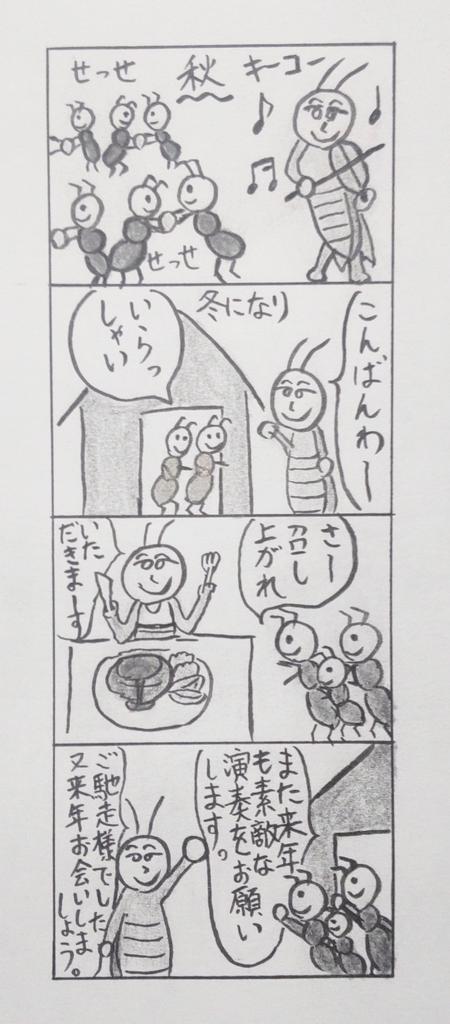 せっせ
秋
キーコー
せっせ
冬になり
こんばんわー
いらっ
しゃい
さー
召し
上がれ
いた
だきまーす
また来年
も素敵な
演奏をお願い
します。
ご馳走様でした
又来年お会いしま
しょう。